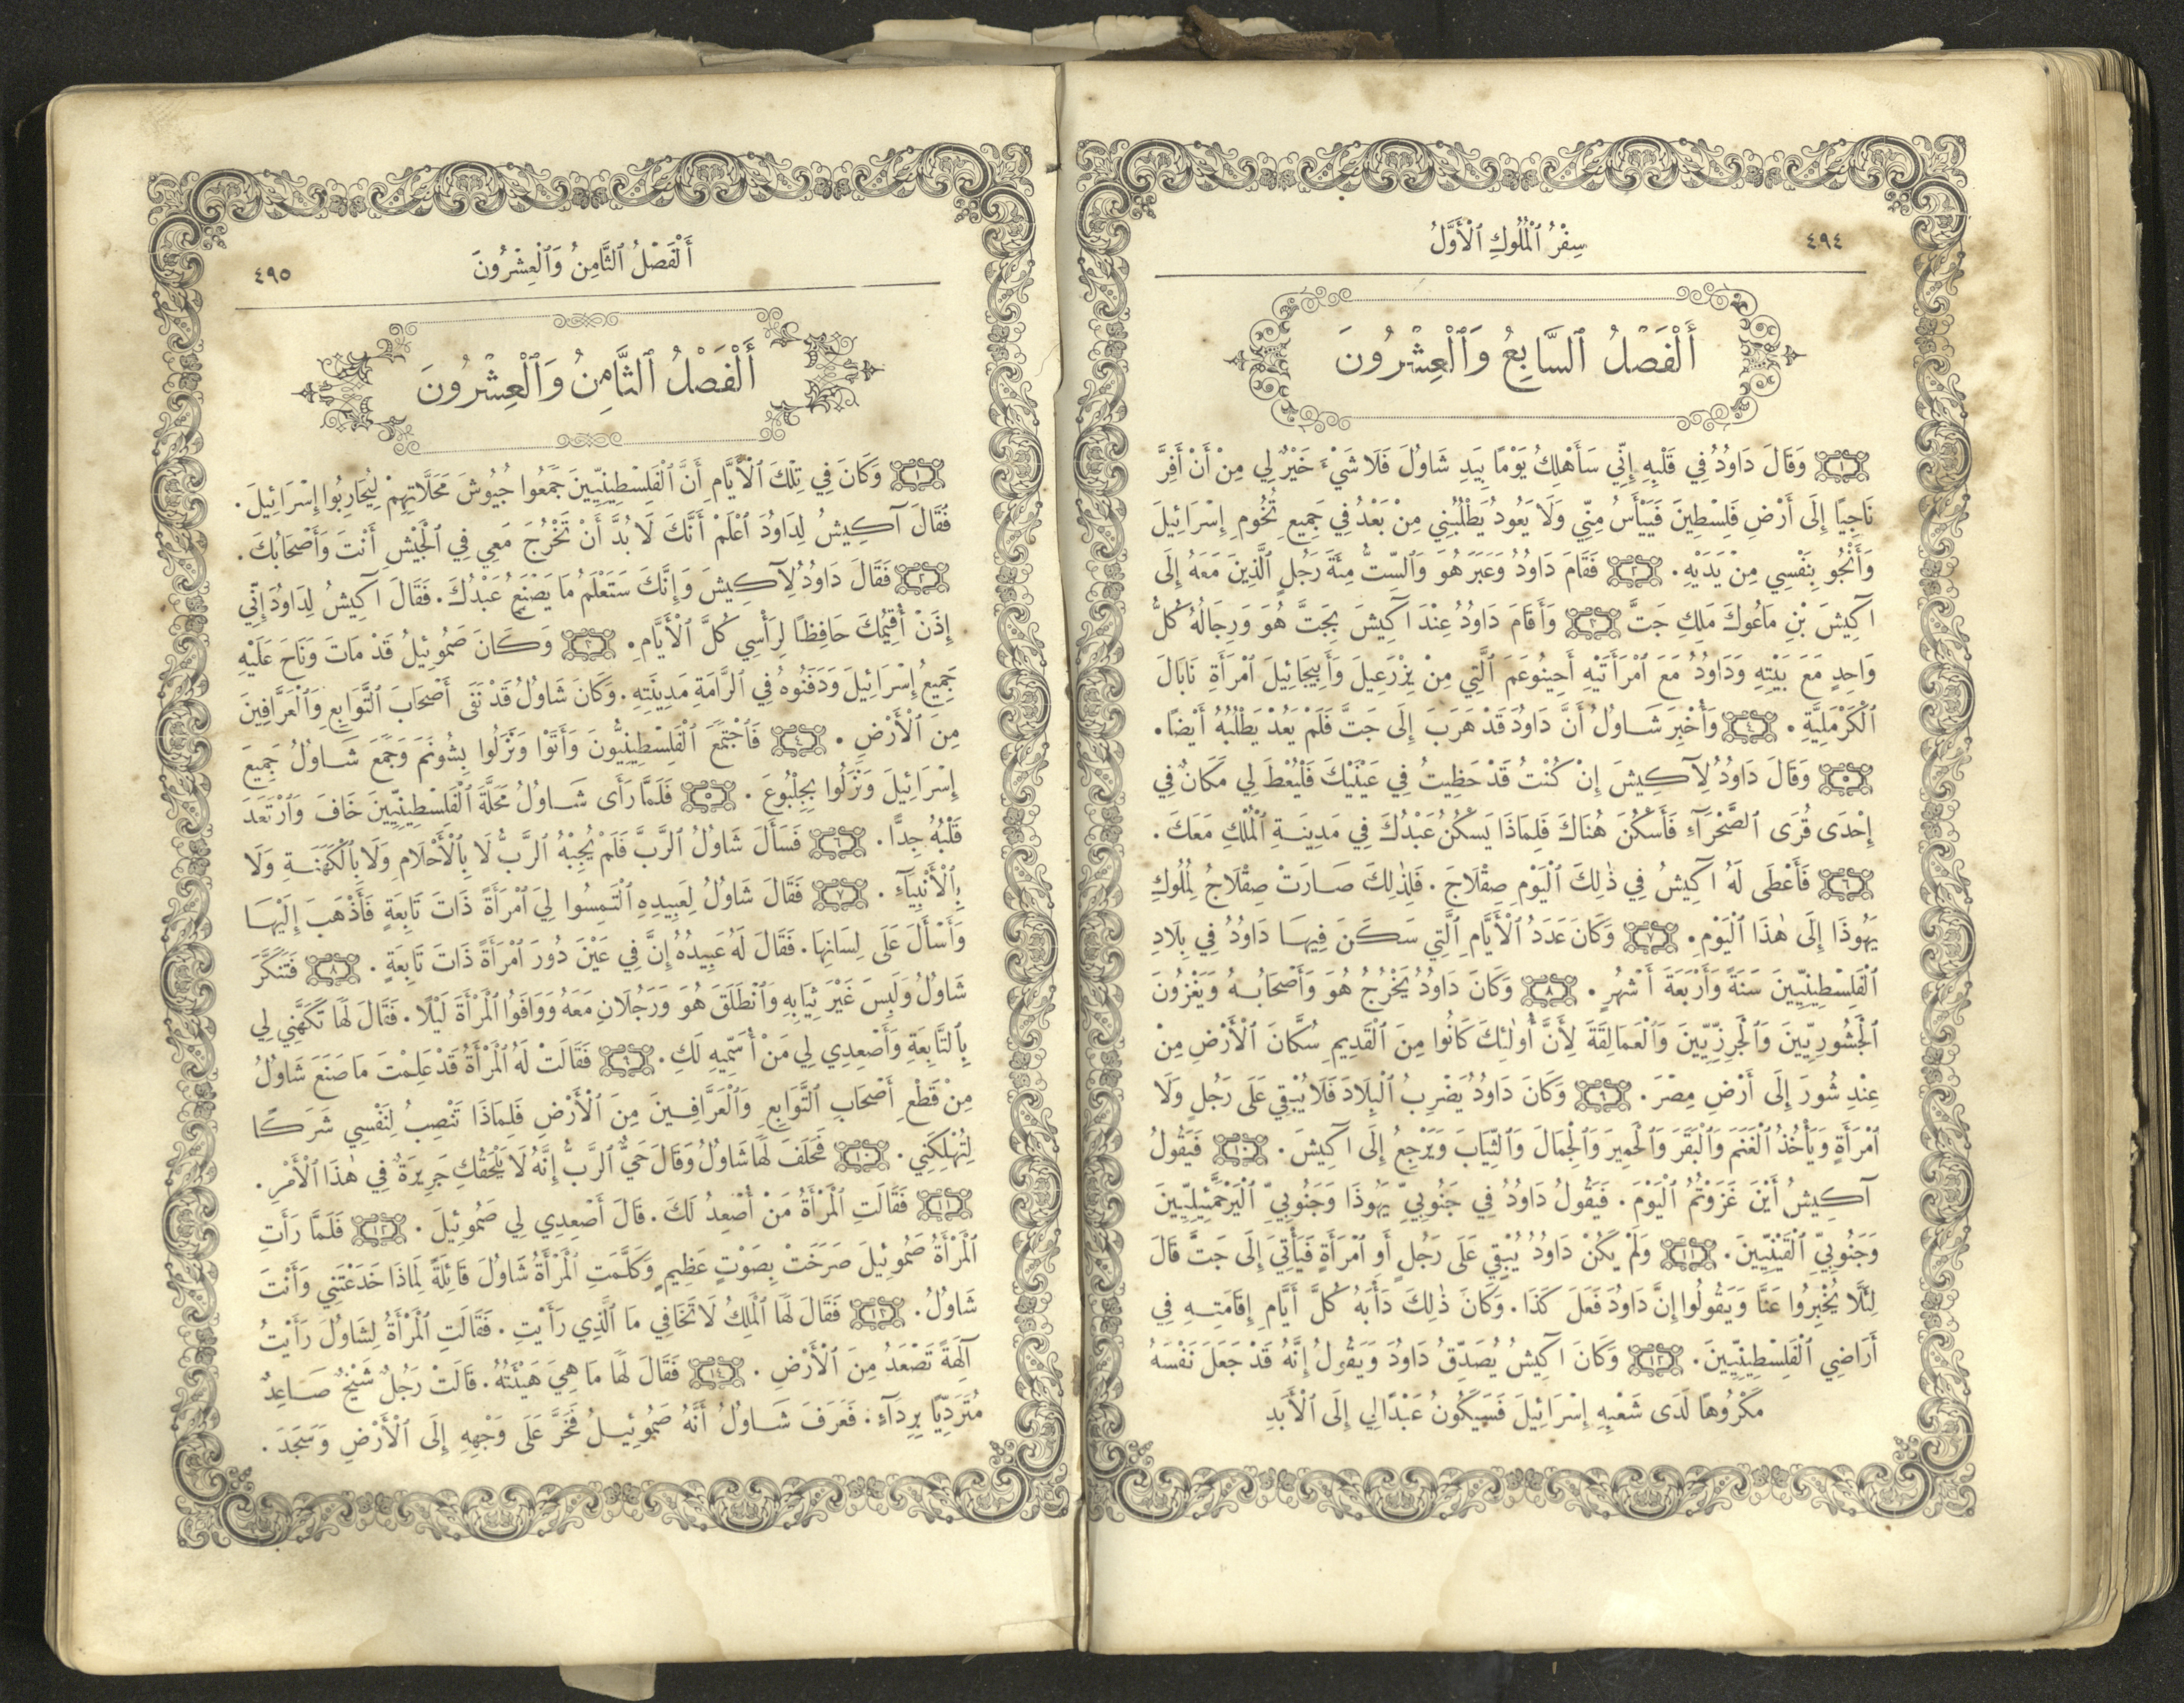 ٤٩٤
سِفْرُ ٱلْمُلُوكِ ٱلْأَوَّلُ
أَلْفَصْلُ ٱلسَّابِعُ وَٱلْعِشْرُونَ
١ وَقَالَ دَاوُدُ فِي قَلْبِهِ إِنِّي سَأَهْلِكُ يَوْمًا بِيَدِ شَاوُلَ فَلَا شَيْءَ خَيْرٌ لِي مِنْ أَنْ أَفِرَّ
نَاجِيًا إِلَى أَرْضِ فَلِسْطِينَ فَيَيْأَسُ مِنِّي وَلَا يَعُودُ يَطْلُبُنِي مِنْ بَعْدُ فِي جَمِيعِ تُخُومِ إِسْرَائِيلَ
وَأَنْجُو بِنَفْسِي مِنْ يَدَيْهِ. ٢ فَقَامَ دَاوُدُ وَعَبَرَ هُوَ وَٱلسِّتُّ مِئَةَ رَجُلٍ ٱلَّذِينَ مَعَهُ إِلَى
آكِيشَ بْنِ مَاعُوكَ مَلِكِ جَتَّ ٣ وَأَقَامَ دَاوُدُ عِنْدَ آكِيشَ بِجَتَّ هُوَ وَرِجَالُهُ كُلُّ
وَاحِدٍ مَعَ بَيْتِهِ وَدَاوُدُ مَعَ ٱمْرَأَتَيْهِ أَحِينُوعَمَ ٱلَّتِي مِنْ يِزْرَعِيلَ وَأَبِيجَائِيلَ ٱمْرَأَةِ نَابَالَ
ٱلْكَرْمَلِيَّةِ. ٤ وَأُخْبِرَ شَاوُلُ أَنَّ دَاوُدَ قَدْ هَرَبَ إِلَى جَتَّ فَلَمْ يَعُدْ يَطْلُبُهُ أَيْضًا.
٥ وَقَالَ دَاوُدُ لِآكِيشَ إِنْ كُنْتُ قَدْ حَظِيتُ فِي عَيْنَيْكَ فَلْيُعْطَ لِي مَكَانٌ فِي
إِحْدَى قُرَى ٱلصَّحْرَآءِ فَأَسْكُنَ هُنَاكَ فَلِمَاذَا يَسْكُنُ عَبْدُكَ فِي مَدِينَةِ ٱلْمُلْكِ مَعَكَ.
٦ فَأَعْطَى لَهُ آكِيشُ فِي ذٰلِكَ ٱلْيَوْمِ صِقْلَاجَ. فَلِذٰلِكَ صَارَتْ صِقْلَاجُ لِمُلُوكِ
يَهُوذَا إِلَى هٰذَا ٱلْيَوْمِ. ٧ وَكَانَ عَدَدُ ٱلْأَيَّامِ ٱلَّتِي سَكَنَ فِيهَا دَاوُدُ فِي بِلَادِ
ٱلْفَلِسْطِينِيِّينَ سَنَةً وَأَرْبَعَةَ أَشْهُرٍ. ٨ وَكَانَ دَاوُدُ يَخْرُجُ هُوَ وَأَصْحَابُهُ وَيَغْزُونَ
ٱلْجَشُورِيِّينَ وَٱلْجَرِزِّيِّينَ وَٱلْعَمَالِقَةَ لِأَنَّ أُولٰئِكَ كَانُوا مِنَ ٱلْقَدِيمِ سُكَّانَ ٱلْأَرْضِ مِنْ
عِنْدِ شُورَ إِلَى أَرْضِ مِصْرَ. ٩ وَكَانَ دَاوُدُ يَضْرِبُ ٱلْبِلَادَ فَلَا يُبْقِي عَلَى رَجُلٍ وَلَا
ٱمْرَأَةٍ وَيَأْخُذُ ٱلْغَنَمَ وَٱلْبَقَرَ وَٱلْحَمِيرَ وَٱلْجِمَالَ وَٱلثِّيَابَ وَيَرْجِعُ إِلَى آكِيشَ. ١٠ فَيَقُولُ
آكِيشُ أَيْنَ غَزَوْتُمُ ٱلْيَوْمَ. فَيَقُولُ دَاوُدُ فِي جَنُوبِيِّ يَهُوذَا وَجَنُوبِيِّ ٱلْيَرْحَمَئِيلِيِّينَ
وَجَنُوبِيِّ ٱلْقَيْنِيِّينَ. ١١ وَلَمْ يَكُنْ دَاوُدُ يُبْقِي عَلَى رَجُلٍ أَوِ ٱمْرَأَةٍ فَيَأْتِيَ إِلَى جَتَّ قَالَ
لِئَلَّا يُخْبِرُوا عَنَّا وَيَقُولُوا إِنَّ دَاوُدَ فَعَلَ كَذَا. وَكَانَ ذٰلِكَ دَأْبَهُ كُلَّ أَيَّامِ إِقَامَتِهِ فِي
أَرَاضِي ٱلْفَلِسْطِينِيِّينَ. ١٢ وَكَانَ آكِيشُ يُصَدِّقُ دَاوُدَ وَيَقُولُ إِنَّهُ قَدْ جَعَلَ نَفْسَهُ
مَكْرُوهًا لَدَى شَعْبِهِ إِسْرَائِيلَ فَسَيَكُونُ عَبْدًا لِي إِلَى ٱلْأَبَدِ
أَلْفَصْلُ ٱلثَّامِنُ وَٱلْعِشْرُونَ
٤٩٥
أَلْفَصْلُ ٱلثَّامِنُ وَٱلْعِشْرُونَ
١ وَكَانَ فِي تِلْكَ ٱلْأَيَّامِ أَنَّ ٱلْفَلِسْطِينِيِّينَ جَمَعُوا جُيُوشَ مَحَلَّاتِهِمْ لِيُحَارِبُوا إِسْرَائِيلَ.
فَقَالَ آكِيشُ لِدَاوُدَ ٱعْلَمْ أَنَّكَ لَا بُدَّ أَنْ تَخْرُجَ مَعِي فِي ٱلْجَيْشِ أَنْتَ وَأَصْحَابُكَ.
٢ فَقَالَ دَاوُدُ لِآكِيشَ وَإِنَّكَ سَتَعْلَمُ مَا يَصْنَعُ عَبْدُكَ. فَقَالَ آكِيشُ لِدَاوُدَ إِنِّي
إِذَنْ أُقِيمُكَ حَافِظًا لِرَأْسِي كُلَّ ٱلْأَيَّامِ. ٣ وَكَانَ صَمُوئِيلُ قَدْ مَاتَ وَنَاحَ عَلَيْهِ
جَمِيعُ إِسْرَائِيلَ وَدَفَنُوهُ فِي ٱلرَّامَةِ مَدِينَتِهِ. وَكَانَ شَاوُلُ قَدْ نَفَى أَصْحَابَ ٱلتَّوَابِعِ وَٱلْعَرَّافِينَ
مِنَ ٱلْأَرْضِ. ٤ فَٱجْتَمَعَ ٱلْفِلِسْطِينِيُّونَ وَأَتَوْا وَنَزَلُوا بِشُونَمَ وَجَمَعَ شَاوُلُ جَمِيعَ
إِسْرَائِيلَ وَنَزَلُوا بِجِلْبُوعَ. ٥ فَلَمَّا رَأَى شَاوُلُ مَحَلَّةَ ٱلْفَلِسْطِينِيِّينَ خَافَ وَٱرْتَعَدَ
قَلْبُهُ جِدًّا. ٦ فَسَأَلَ شَاوُلُ ٱلرَّبَّ فَلَمْ يُجِبْهُ ٱلرَّبُّ لَا بِٱلْأَحْلَامِ وَلَا بِٱلْكَهَنَةِ وَلَا
بِٱلْأَنْبِيَآءِ. ٧ فَقَالَ شَاوُلُ لِعَبِيدِهِ ٱلْتَمِسُوا لِيَ ٱمْرَأَةً ذَاتَ تَابِعَةٍ فَأَذْهَبَ إِلَيْهَا
وَأَسْأَلَ عَلَى لِسَانِهَا. فَقَالَ لَهُ عَبِيدُهُ إِنَّ فِي عَيْنَ دُورَ ٱمْرَأَةً ذَاتَ تَابِعَةٍ. ٨ فَتَنَكَّرَ
شَاوُلُ وَلَبِسَ غَيْرَ ثِيَابِهِ وَٱنْطَلَقَ هُوَ وَرَجُلَانِ مَعَهُ وَوَافَوُا ٱلْمَرْأَةَ لَيْلًا. فَقَالَ لَهَا تَكَهَّنِي لِي
بِٱلتَّابِعَةِ وَأَصْعِدِي لِي مَنْ أُسَمِّيهِ لَكِ. ٩ فَقَالَتْ لَهُ ٱلْمَرْأَةُ قَدْ عَلِمْتَ مَا صَنَعَ شَاوُلُ
مِنْ قَطْعِ أَصْحَابِ ٱلتَّوَابِعِ وَٱلْعَرَّافِينَ مِنَ ٱلْأَرْضِ فَلِمَاذَا تَنْصِبُ لِنَفْسِي شَرَكًا
لِتُهْلِكَنِي. ١٠ فَحَلَفَ لَهَا شَاوُلُ وَقَالَ حَيٌّ ٱلرَّبُّ إِنَّهُ لَا يَلْحَقُكِ جَرِيرَةٌ فِي هٰذَا ٱلْأَمْرِ.
١١ فَقَالَتِ ٱلْمَرْأَةُ مَنْ أُصْعِدُ لَكَ. قَالَ أَصْعِدِي لِي صَمُوئِيلَ. ١٢ فَلَمَّا رَأَتِ
ٱلْمَرْأَةُ صَمُوئِيلَ صَرَخَتْ بِصَوْتٍ عَظِيمٍ وَكَلَّمَتِ ٱلْمَرْأَةُ شَاوُلَ قَائِلَةً لِمَاذَا خَدَعْتَنِي وَأَنْتَ
شَاوُلُ. ١٣ فَقَالَ لَهَا ٱلْمَلِكُ لَا تَخَافِي مَا ٱلَّذِي رَأَيْتِ. فَقَالَتِ ٱلْمَرْأَةُ لِشَاوُلَ رَأَيْتُ
آلِهَةً تَصْعَدُ مِنَ ٱلْأَرْضِ. ١٤ فَقَالَ لَهَا مَا هِيَ هَيْئَتُهُ. قَالَتْ رَجُلٌ شَيْخٌ صَاعِدٌ
مُتَرَدِّيًا بِرِدَآءٍ. فَعَرَفَ شَاوُلُ أَنَّهُ صَمُوئِيلُ فَخَرَّ عَلَى وَجْهِهِ إِلَى ٱلْأَرْضِ وَسَجَدَ.